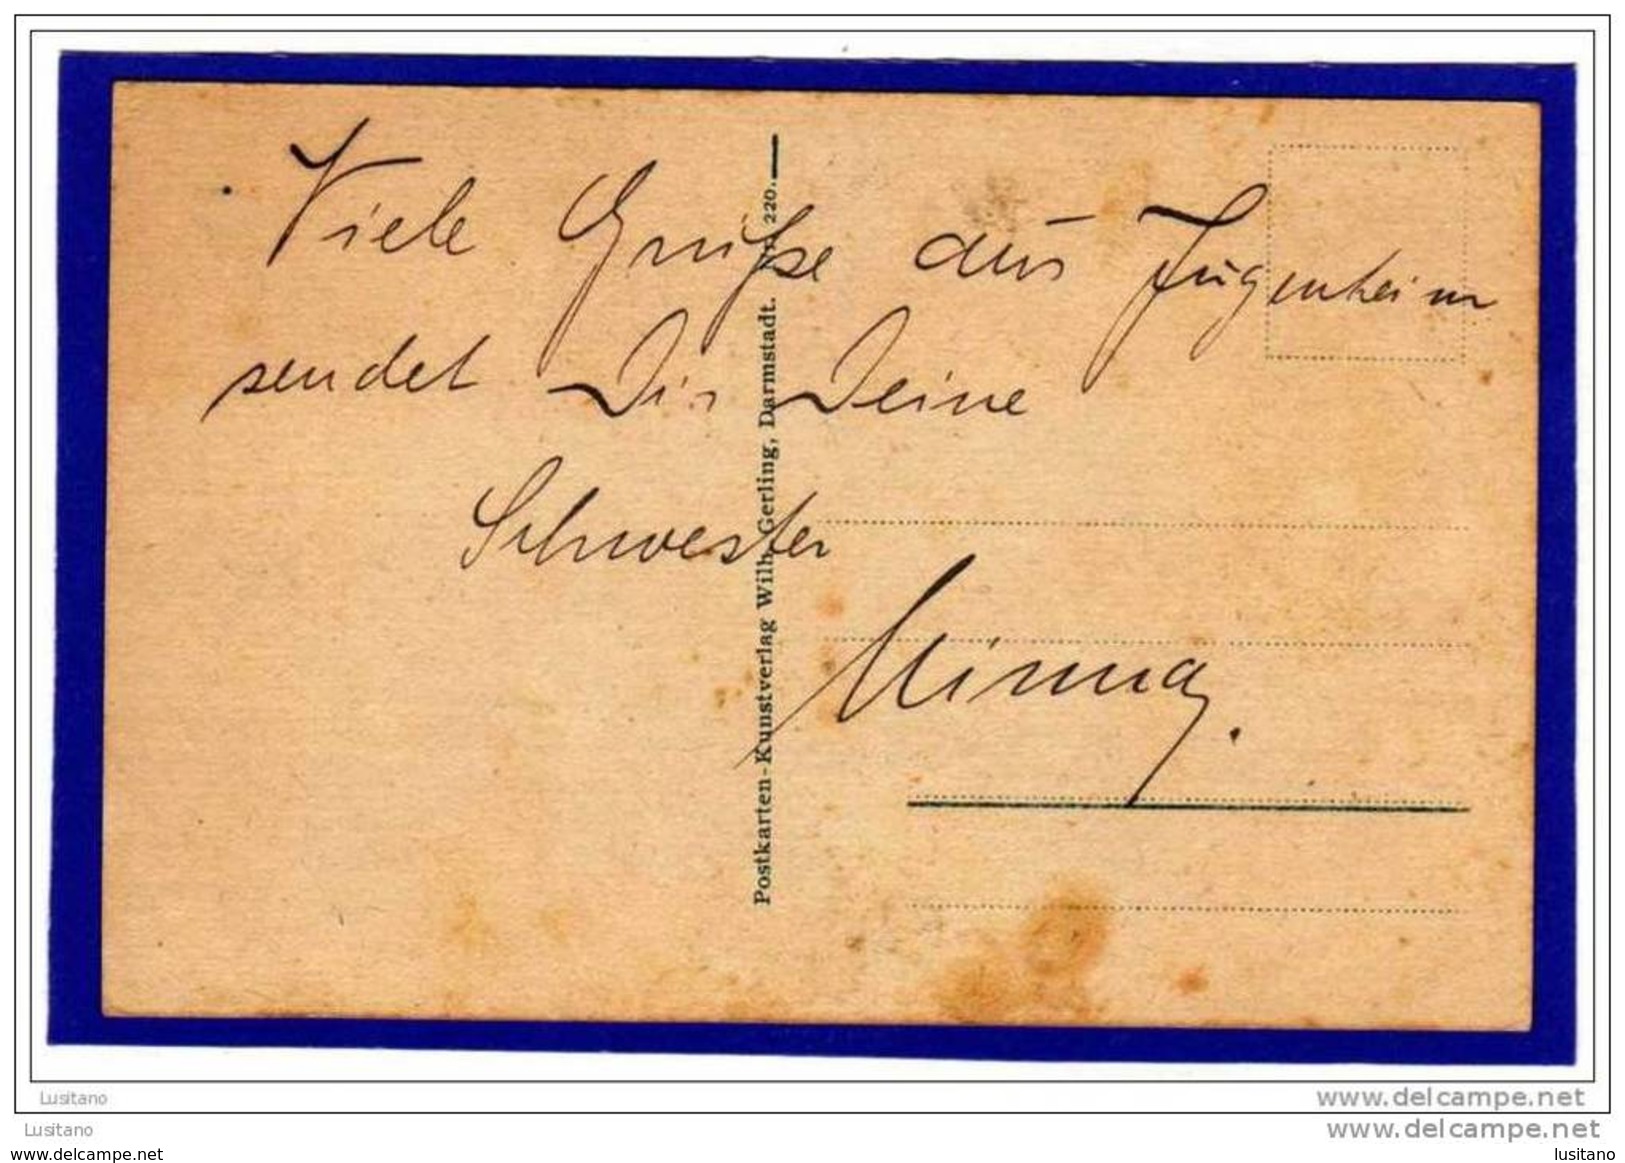 Viele Grüße aus Jugenheim
sendet Dir Deine
Schwester
Minna.
Postkarten-Kunstverlag Wilh. Gerling, Darmstadt. 220.
Lusitano
www.delcampe.net
Lusitano
www.delcampe.net
www.delcampe.net
lusitano